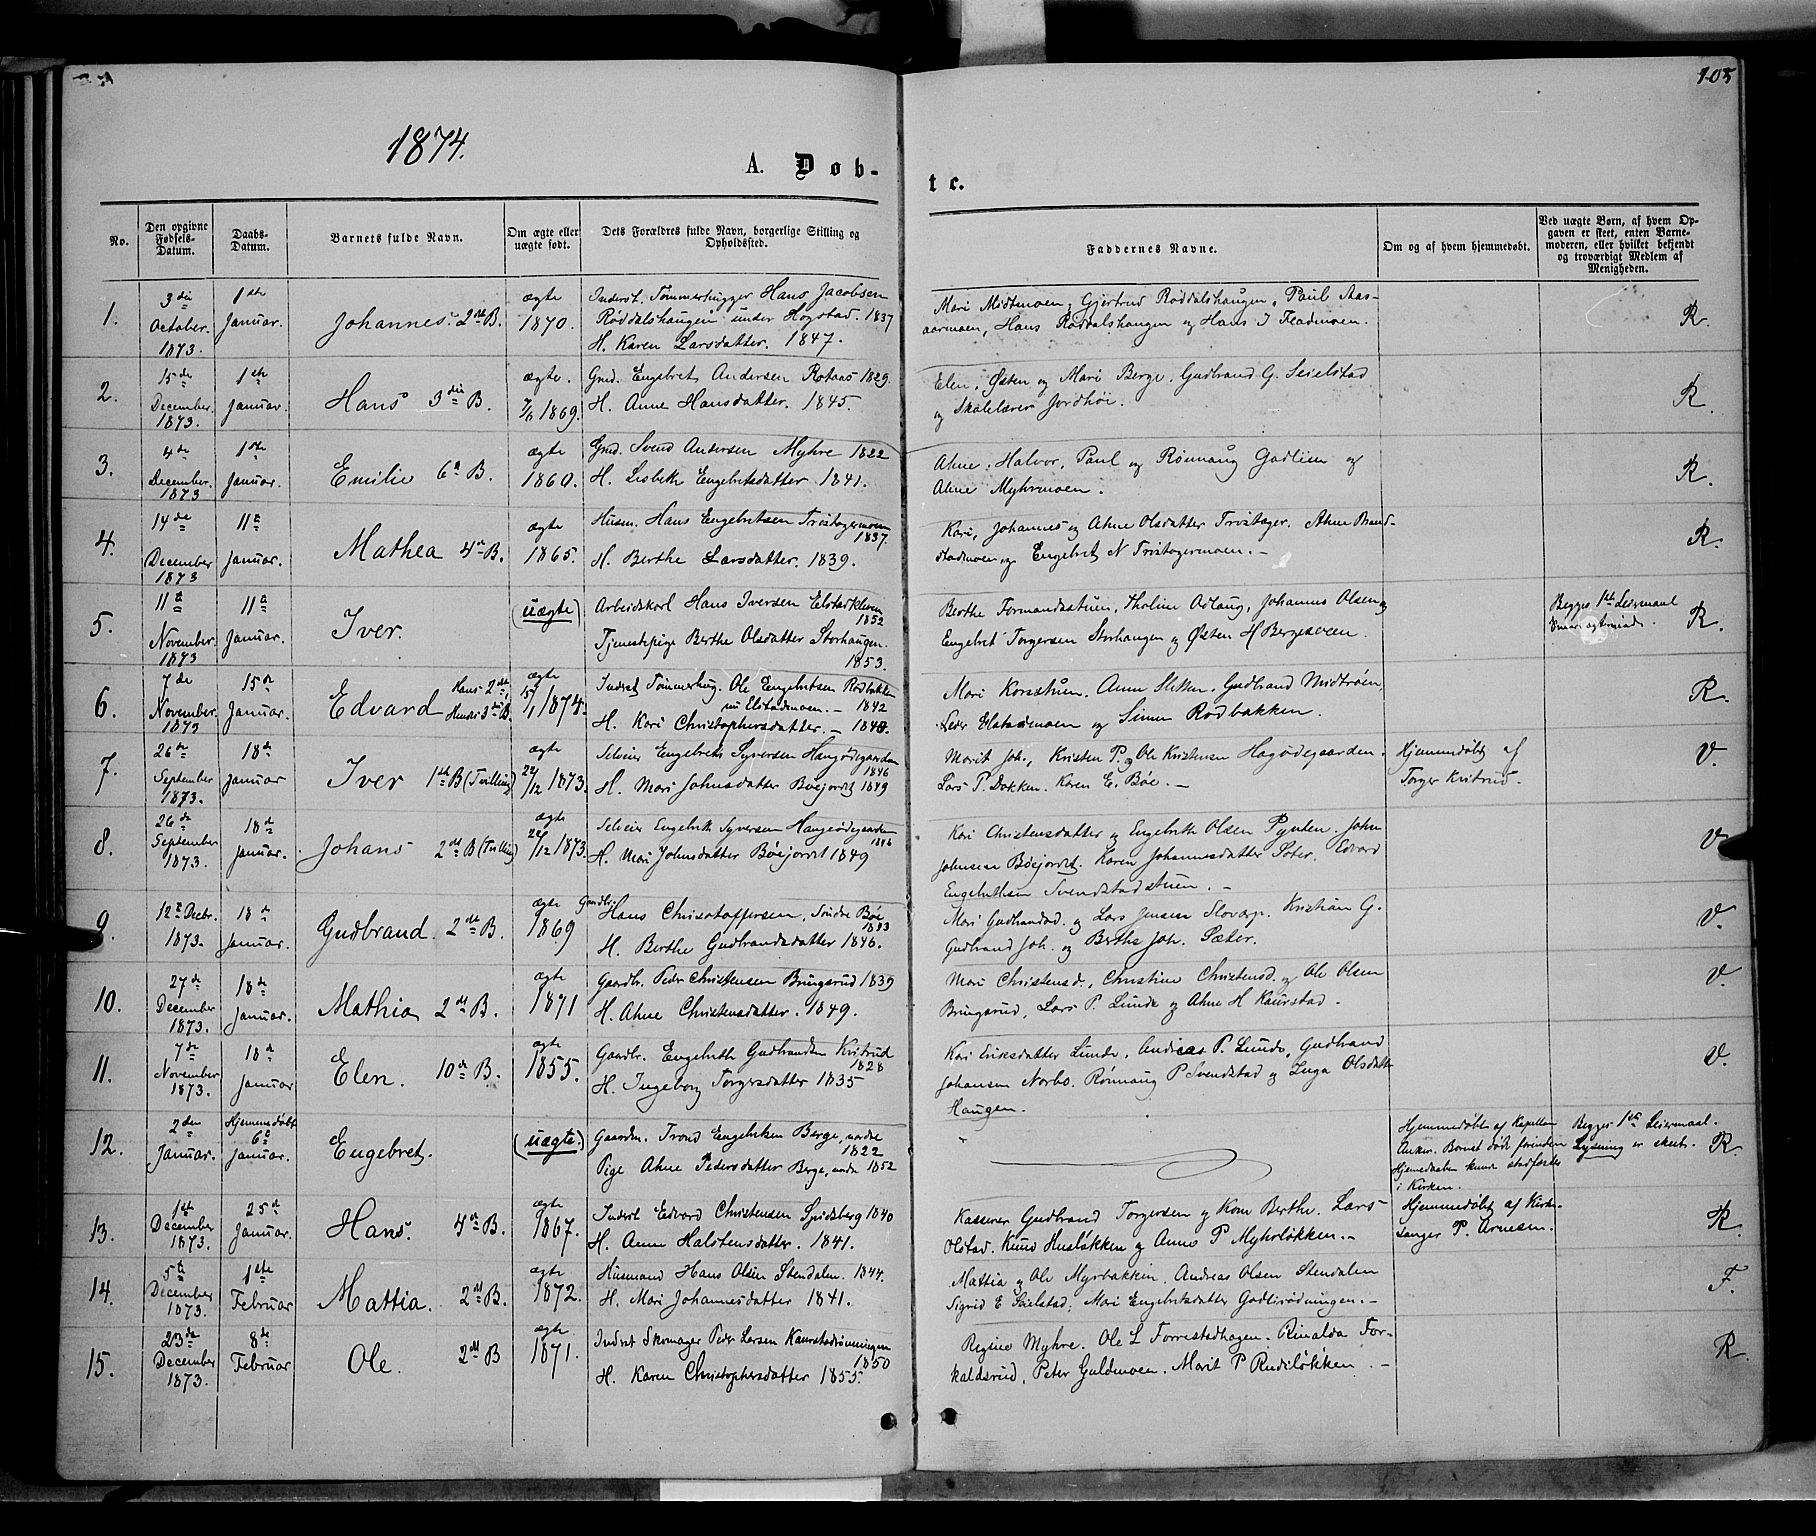 105
1874.
A. Døb-
te.
No.
Den opgivne Fødsels-Datum.
Daabs-Datum.
Barnets fulde Navn.
Om ægte eller uægte født.
Dets Forældres fulde Navn, borgerlige Stilling og Opholdssted.
Faddernes Navne.
Om og af hvem hjemmedøbt.
Ved uægte Børn, af hvem Opgaven er skeet, enten Barnemoderen, eller hvilket bekjendt og troværdigt Medlem af Menigheden.
1.
3die October. 1873.
1ste Januar.
Johannes. 2det B.
ægte 1870.
Inderst. Tømmerhugger Hans Jacobsen
Røddalshaugen under Hogstad. 1837
H. Karen Larsdatter. 1847.
Mari Midtmoen, Gjertrud Røddalshaugen, Paul Aas-
aarmoen, Hans Røddalshaugen og Hans J Fladmoen.
R.
2.
15de December. 1873.
1ste Januar.
Hans 3die B.
ægte. 7/8 1869.
Gmd. Engebret Andersen Rotaas 1829.
H. Anne Hansdatter. 1845.
Elen, Østen og Mari Berge, Gudbrand G. Seielstad
og Skolelærer Jordhøi.
R.
3.
4de December. 1873
1ste Januar.
Emilie 6te B.
ægte 1860.
Gmd. Svend Andersen Myhre 1822
H. Lisbeth Engebretsdatter 1841.
Ahne, Halvor, Paul og Rønnaug Gadlien og
Ahne Myhrmoen.
R.
4.
14de December 1873
11te Januar.
Mathea 4de B.
ægte 1865.
Husm. Hans Engebretsen Trostagermoen
1837.
H. Berthe Larsdatter. 1839.
Kari, Johannes og Ahne Olsdatter Trostager. Ahne Brand-
stadmoen og Engebret N Trostagermoen.-
R.
5.
11te November. 1873
11te Januar.
Iver.
(uægte)
Arbeidskarl Hans Iversen Elstadkleven
1852
Tjenestepige Berthe Olsdatter Storhaugen.
1853.
Berthe Formandsstuen, Tholine Aslaug, Johannes Olsen og
Engebret Torgersen Storhaugen og Østen H Bergesveen.
Begges 1ste Leiermaal
R.
6.
7de November. 1873
15de Januar.
Edvard Hans 2det, Hendes 3die B.
ægte 15/1 1874.
Inderst Tømmerhug. Ole Engebretsen Rodbakken
nu Elstadmoen. - 1842
H. Kari Christophersdatter. - 1840.
Mari Korsstuen. Anne Sletten. Gudbrand Midtmoen,
Peder Elstadmoen og Simen Rodbakken.
R.
7.
26de September 1873.
18de Januar
Iver 1ste B (Tvilling)
ægte 22/12 1873.
Selveier Engebreth Syversen Haugødegaarden
1846
H. Mari Johnsdatter Bøejordet 1849
Marit Joh., Kristen P. og Ole Kristensen Hagødegaarden.
Lars P. Dokken. Karen E. Bøe. -
Hjemmedøbt af
Torger Kvitrud.
V.
8.
26de September 1873.
18de Januar.
Johans 2det B (Tvilling)
ægte 22/12 1873.
Selveier Engebreth Syversen Haugeødegaarden
1846
H. Mari Johnsdatter Bøejordet 1849
Kari Christensdatter og Engebreth Olsen Pynten. John
Johnsen Bøejordet. Karen Johannesdatter Sæter. Edvard
Engebrethsen Svendstadstuen. -
V.
9.
12te Decbr. 1873.
18de Januar.
Gudbrand. 2det B.
ægte 1869
Gaardbr. Hans Christoffersen, Søndre Bøe
1843
H. Berthe Gudbrandsdatter 1846.
Mari Gudbrandsd. og Lars Jensen Sloverp. Kristian G.
Gudbrand Joh. og Berthe Joh. Sæter.
V.
10.
27de December 1873.
18de Januar.
Mathia 2det B.
ægte 1871
Gaardbr. Peder Christensen Bringsrud 1839
H. Ahne Christensdatter. 1849.
Mari Christensd., Christine Christensd. og Ole Olsen
Bringsrud, Lars P. Lunde og Ahne H Kaurstad.
V.
11.
7de November 1873.
18de Januar
Elen. 10de B.
ægte 1855.
Gaardbr. Engebreth Gudbrandsen Kvitrud
1828
H. Ingeborg Torgersdatter 1835
Kari Eriksdatter Lunde, Andreas P. Lunde, Gudbrand
Johansen Norbo. Rønnaug P Svendstad og Inga Olsdatter
Haugen.
V.
12.
2den Januar.
Hjemmedøbt 6te Januar.
Engebret.
(uægte.)
Gaardm. Trond Engebretsen Berge, nordre
1822
Pige Ahne Pedersdatter Berge, nordre 1852
Hjemmedøbt af Kapellan
Anker. Barnet døde førinden
Hjemmedaaben kunde stadfæstes
i Kirken.
Begges 1ste Leiermaal.
Lysning er skeet.
R.
13.
1ste December 1873.
25de Januar.
Hans. 4de B.
ægte 1867.
Inderst Edvard Christensen Spidsberg 1840
H. Anne Halstensdatter. 1841.
Kasserer Gudbrand Torgersen og Kone Berthe. Lars
Olstad. Knud Husløkken og Anne P Myhrløkken.-
Hjemmedøbt af Kirke-
sanger P. Arnesen.
R.
14.
5te December 1873.
1ste Februar
Mattia. 2det B.
ægte 1872.
Husmand Hans Olsen Stendalen. 1844.
H. Mari Johannesdatter 1841.
Mattia og Ole Myrbakken. Andreas Olsen Stendalen
Sigrid E Seielstad; Mari Engebretsdatter Godlirødningen.-
F.
15.
23de December 1873.
8de Februar
Ole. 2det B
ægte 1871.
Inderst Skomager Peder Larsen Kaurstadrønningen
1850
H. Karen Christophersdatter 1855.
Regine Myhre. Ole L Forrestadhagen. Rinalda For-
kalsrud, Peter Guldmoen. Marit P Rudiløkken. -
R.